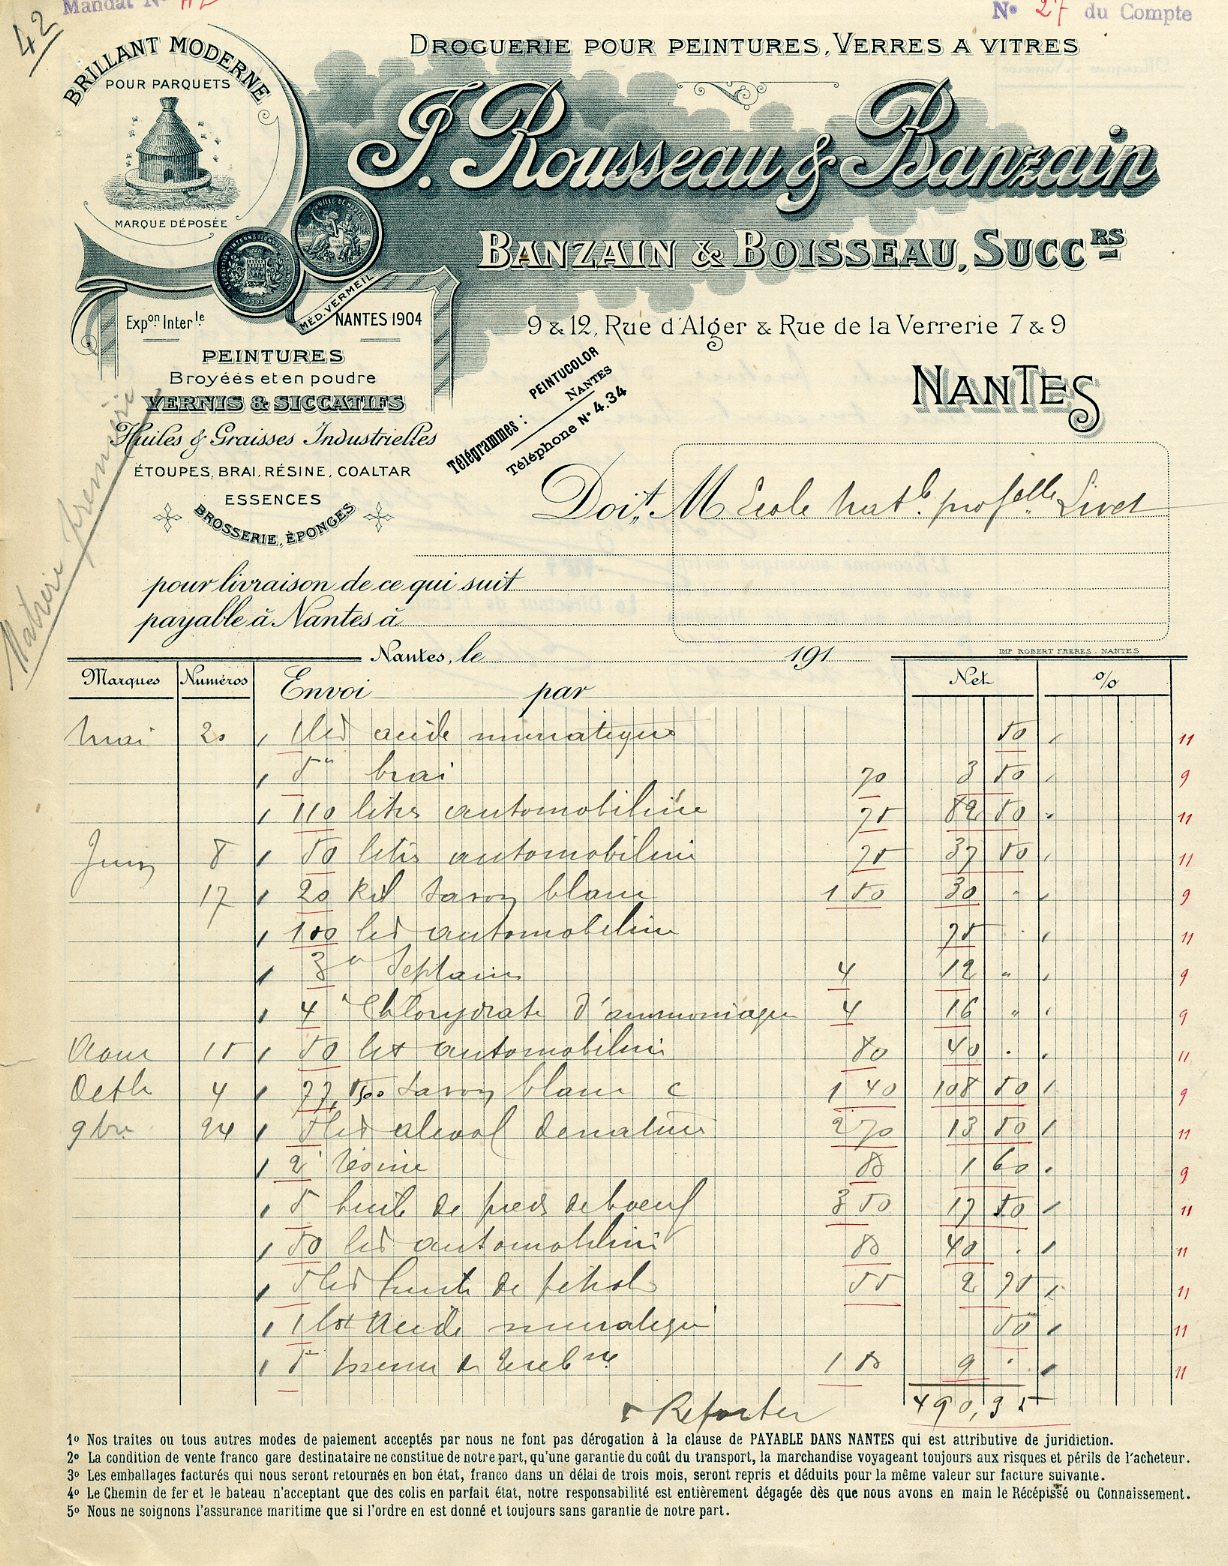 42
Mandat N° 42
N° 27 du Compte
BRILLANT MODERNE
POUR PARQUETS
MARQUE DÉPOSÉE
DROGUERIE POUR PEINTURES, VERRES A VITRES
J. Rousseau & Banzain
BANZAIN & BOISSEAU, SUCCRS
9 & 12, Rue d'Alger & Rue de la Verrerie 7 & 9
NANTES
MÉD. VERMEIL
Expon Interle
NANTES 1904
PEINTURES
Broyées et en poudre
VERNIS & SICCATIFS
Huiles & Graisses Industrielles
ÉTOUPES, BRAI, RÉSINE, COALTAR
ESSENCES
BROSSERIE, ÉPONGES
Télégrammes : PEINTUCOLOR NANTES
Téléphone N° 4.34
Matière première
Doit, M Ecole Natle profelle Livet
pour livraison de ce qui suit
payable à Nantes à
Nantes, le 191
IMP. ROBERT FRERES. NANTES
Marques Numéros Envoi par Net %
Mai 20 1 lit acide muriatique 50 11
5 " brai 70 3 50 9
110 litres automobiline 75 82 50 11
Juin 8 50 litres automobiline 75 37 50 11
17 20 Kil savon blanc 1 50 30 " 9
100 lit automobiline 75 11
3 " 4 12 " 9
4 " Chlorydrate d'ammoniaque 4 16 " 9
Aout 15 50 lit automobiline 80 40 . 11
Octb 4 77,500 savon blanc c 1 40 108 50 9
9bre 24 5 lit alcool denature 2 70 13 50 11
2 " résine 80 1 60 9
5 huile de pieds de boeuf 3 50 17 50 11
50 lit automobiline 80 40 . 11
5 lit huile de pétrole 55 2 75 11
1 lit Acide muriatique 50 11
5 " essence de Terebne 1 80 9 . 11
à Reporter 490,35
1° Nos traites ou tous autres modes de paiement acceptés par nous ne font pas dérogation à la clause de PAYABLE DANS NANTES qui est attributive de juridiction.
2° La condition de vente franco gare destinataire ne constitue de notre part, qu'une garantie du coût du transport, la marchandise voyageant toujours aux risques et périls de l'acheteur.
3° Les emballages facturés qui nous seront retournés en bon état, franco dans un délai de trois mois, seront repris et déduits pour la même valeur sur facture suivante.
4° Le Chemin de fer et le bateau n'acceptant que des colis en parfait état, notre responsabilité est entièrement dégagée dès que nous avons en main le Récépissé ou Connaissement.
5° Nous ne soignons l'assurance maritime que si l'ordre en est donné et toujours sans garantie de notre part.